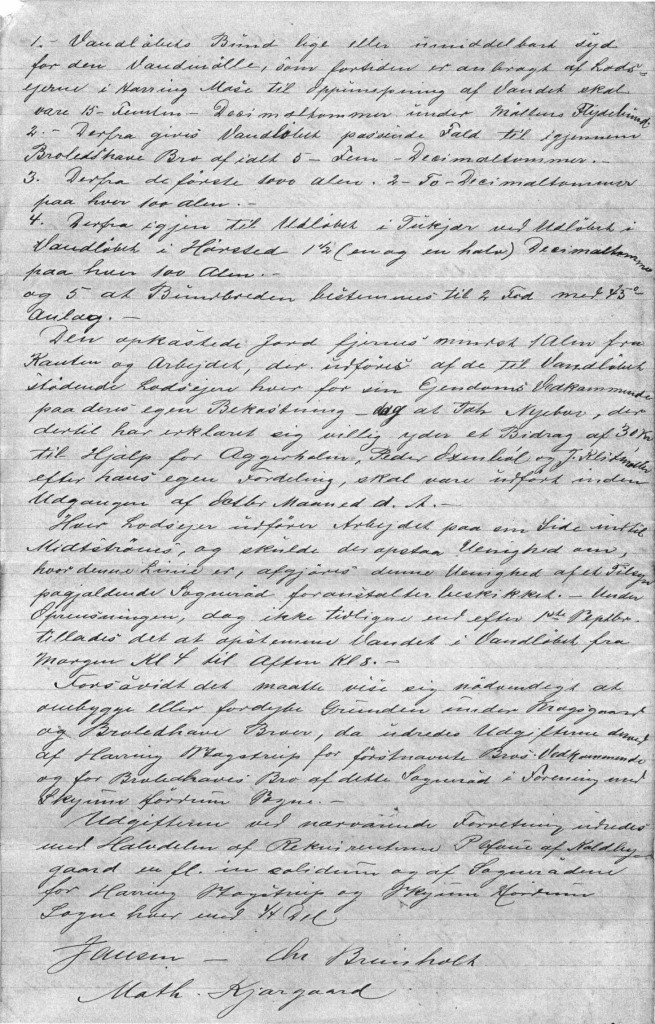 1.- Vandløbets Bund lige eller umiddelbart syd
for den Vandmølle, som fortiden er anbragt af Lods-
ejerne i Harring Mose til Oppumpning af Vandet skal
være 15- Femten- Decimaltommer under Møllens
2.- Derfra gives Vandløbet passende Fald til igjennem
Broledshave Bro af ialt 5- Fem- Decimaltommer.-
3. Derfra de første 1000 Alen. 2- To- Decimaltommer
paa hver 100 Alen.-
4. Derfra igjen til Udløbet i Tukjær ved Udløbet i
Vandløbet i Hørsted 1 1/2 (en og en halv) Decimaltomme
paa hver 100 Alen.-
og 5 at Bundbreden bestemmes til 2 Fod med 45°
Anlæg.-
Den opkastede Jord fjernes mindst 1 Alen fra
Kanten og Arbejdet, der udføres af de til Vandløbet
stødende Lodsejere hver for sin Ejendoms Vedkommende
paa deres egen Bekostning - dog at Joh Nyebor, der
dertil har erklæret sig villig yder et Bidrag af 30 Kr
til Hjælp for Aggerholm, Peder Oxenbøl og J. Klitmøller
efter hans egen Fordeling, skal være udført inden
Udgangen af Octbr Maaned d. A.-
Hver Lodsejer udfører Arbejdet paa sin Side indtil
Midtstrøms, og skulde der opstaa Uenighed om,
hvor denne Linie er, afgjøres denne Uenighed af et Tilsyn
pågjældende Sogneråd foranstalter beskikket.- Under
Oprensningen, dog ikke tidligere end efter 1ste Septbr.
tillades det at opstemme Vandet i Vandløbet fra
Morgen Kl 4 til Aften Kl 8.-
Forsåvidt det maatte vise sig nødvendigt at
ombygge eller fordybe Grunden under
og Broledhave Broer, da udredes Udgifterne derved
af Harring Stagstrup for førstnævnte Bros Vedkommende
og for Broledhaves Bro af dette Sogneråd i Forening med
Skjum Hørdum Sogne.-
Udgifterne ved nærværende Forretning udredes
med Halvdelen af Rekvirenterne P af Koldby
gaard en fl. in solidum og af Sognerådene
for Harring Stagstrup og Skjum Hørdum
Sogne hver med 1/4 Del
Jansen - Chr Brunholt
Math. Kjærgaard